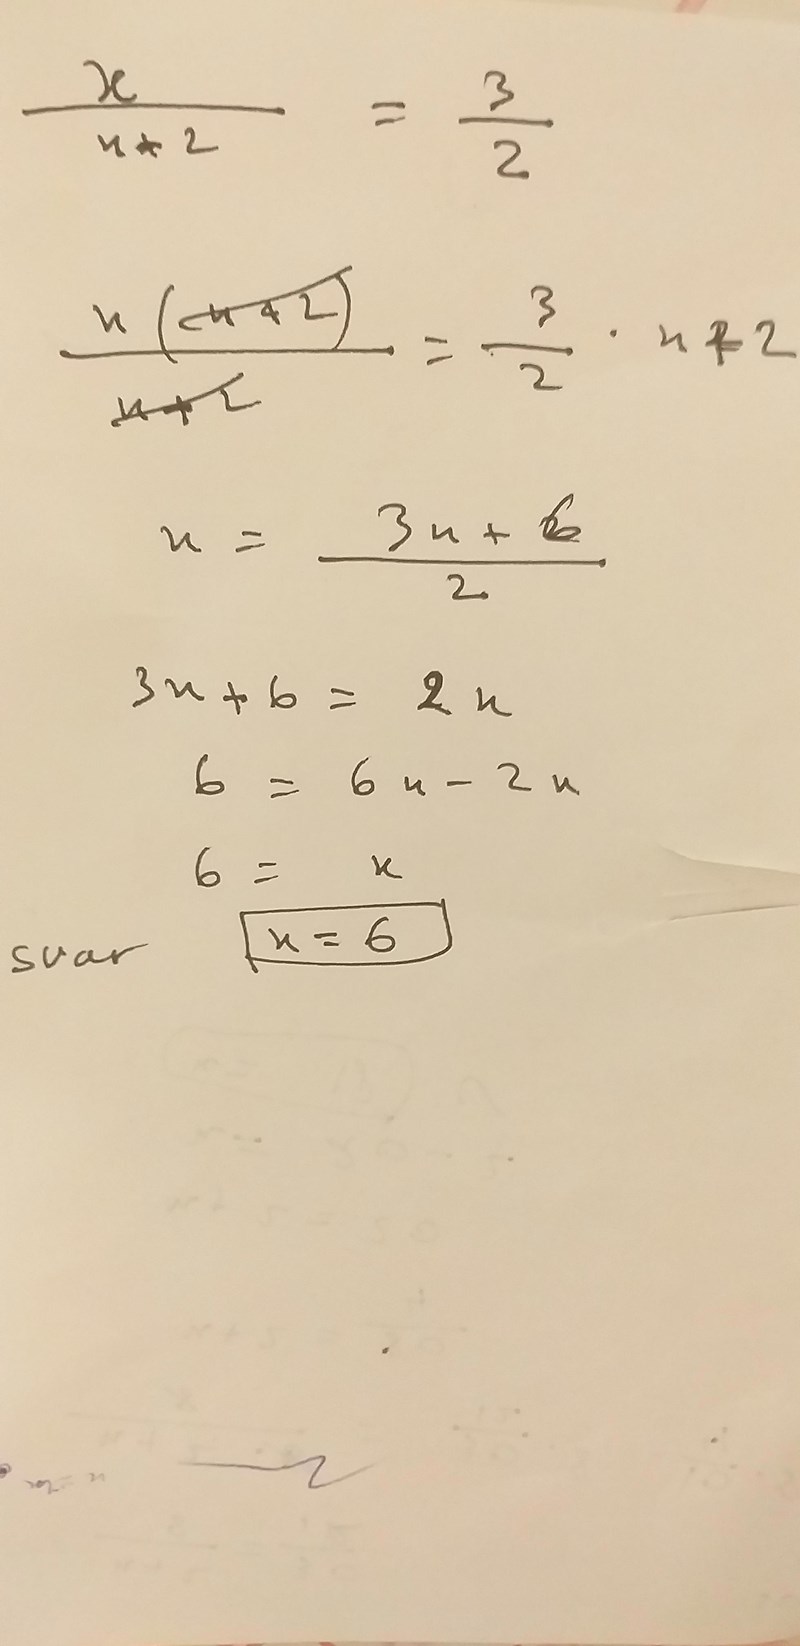 x / x+2 = 3 / 2
x (x+2) / x+2 = 3 / 2 · x+2
x = 3x + 6 / 2
3x + 6 = 2x
6 = 6x - 2x
6 = x
svar x = 6